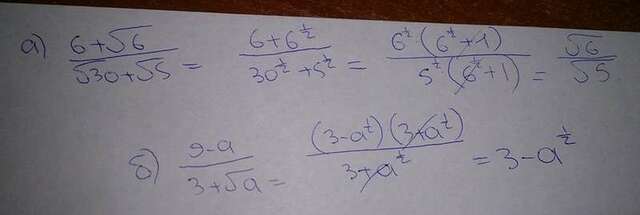 а) (6+√6)/(√30+√5) = (6+6^(1/2))/(30^(1/2)+5^(1/2)) = (6^(1/2)·(6^(1/2)+1))/(5^(1/2)·(6^(1/2)+1)) = √6/√5
б) (9-a)/(3+√a) = ((3-a^(1/2))(3+a^(1/2)))/(3+a^(1/2)) = 3-a^(1/2)